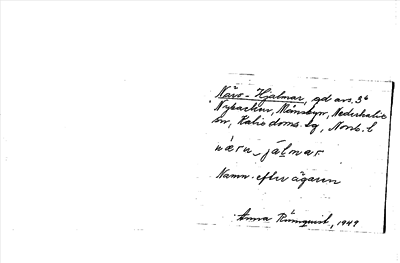 Närs-Hjalmar, gd avs. 3⁶
Nybacken, Månsbyn, Nederkalix
sn, Kalix doms. lg, Norrb. l
næru-jálmar
Namn efter ägaren
Anna Rönnqvist, 1949